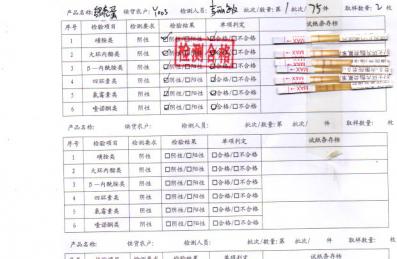 产品名称: 供货农户: Y003 检测人员: 批次/数量:第 1 批次/ 75 件 取样数量: 2 枚
序号 检验项目 检测要求 检验结果 单项判定 试纸条存档
1 磺胺类 阴性 ☑阴性/☐阳性 ☑合格/☐不合格
2 大环内酯类 阴性 ☑阴性/☐阳性 ☑合格/☐不合格
3 β—内酰胺类 阴性 ☑阴性/☐阳性 ☑合格/☐不合格
4 四环素类 阴性 ☑阴性/☐阳性 ☑合格/☐不合格
5 氯霉素类 阴性 ☑阴性/☐阳性 ☑合格/☐不合格
6 喹诺酮类 阴性 ☑阴性/☐阳性 ☑合格/☐不合格
检测合格
MAX
MAX
MAX
MAX
MAX
产品名称: 供货农户: 检测人员: 批次/数量:第 批次/ 件 取样数量: 枚
序号 检验项目 检测要求 检验结果 单项判定 试纸条存档
1 磺胺类 阴性 ☐阴性/☐阳性 ☐合格/☐不合格
2 大环内酯类 阴性 ☐阴性/☐阳性 ☐合格/☐不合格
3 β—内酰胺类 阴性 ☐阴性/☐阳性 ☐合格/☐不合格
4 四环素类 阴性 ☐阴性/☐阳性 ☐合格/☐不合格
5 氯霉素类 阴性 ☐阴性/☐阳性 ☐合格/☐不合格
6 喹诺酮类 阴性 ☐阴性/☐阳性 ☐合格/☐不合格
产品名称: 供货农户: 检测人员: 批次/数量:第 批次/ 件 取样数量: 枚
序号 检验项目 检测要求 检验结果 单项判定 试纸条存档